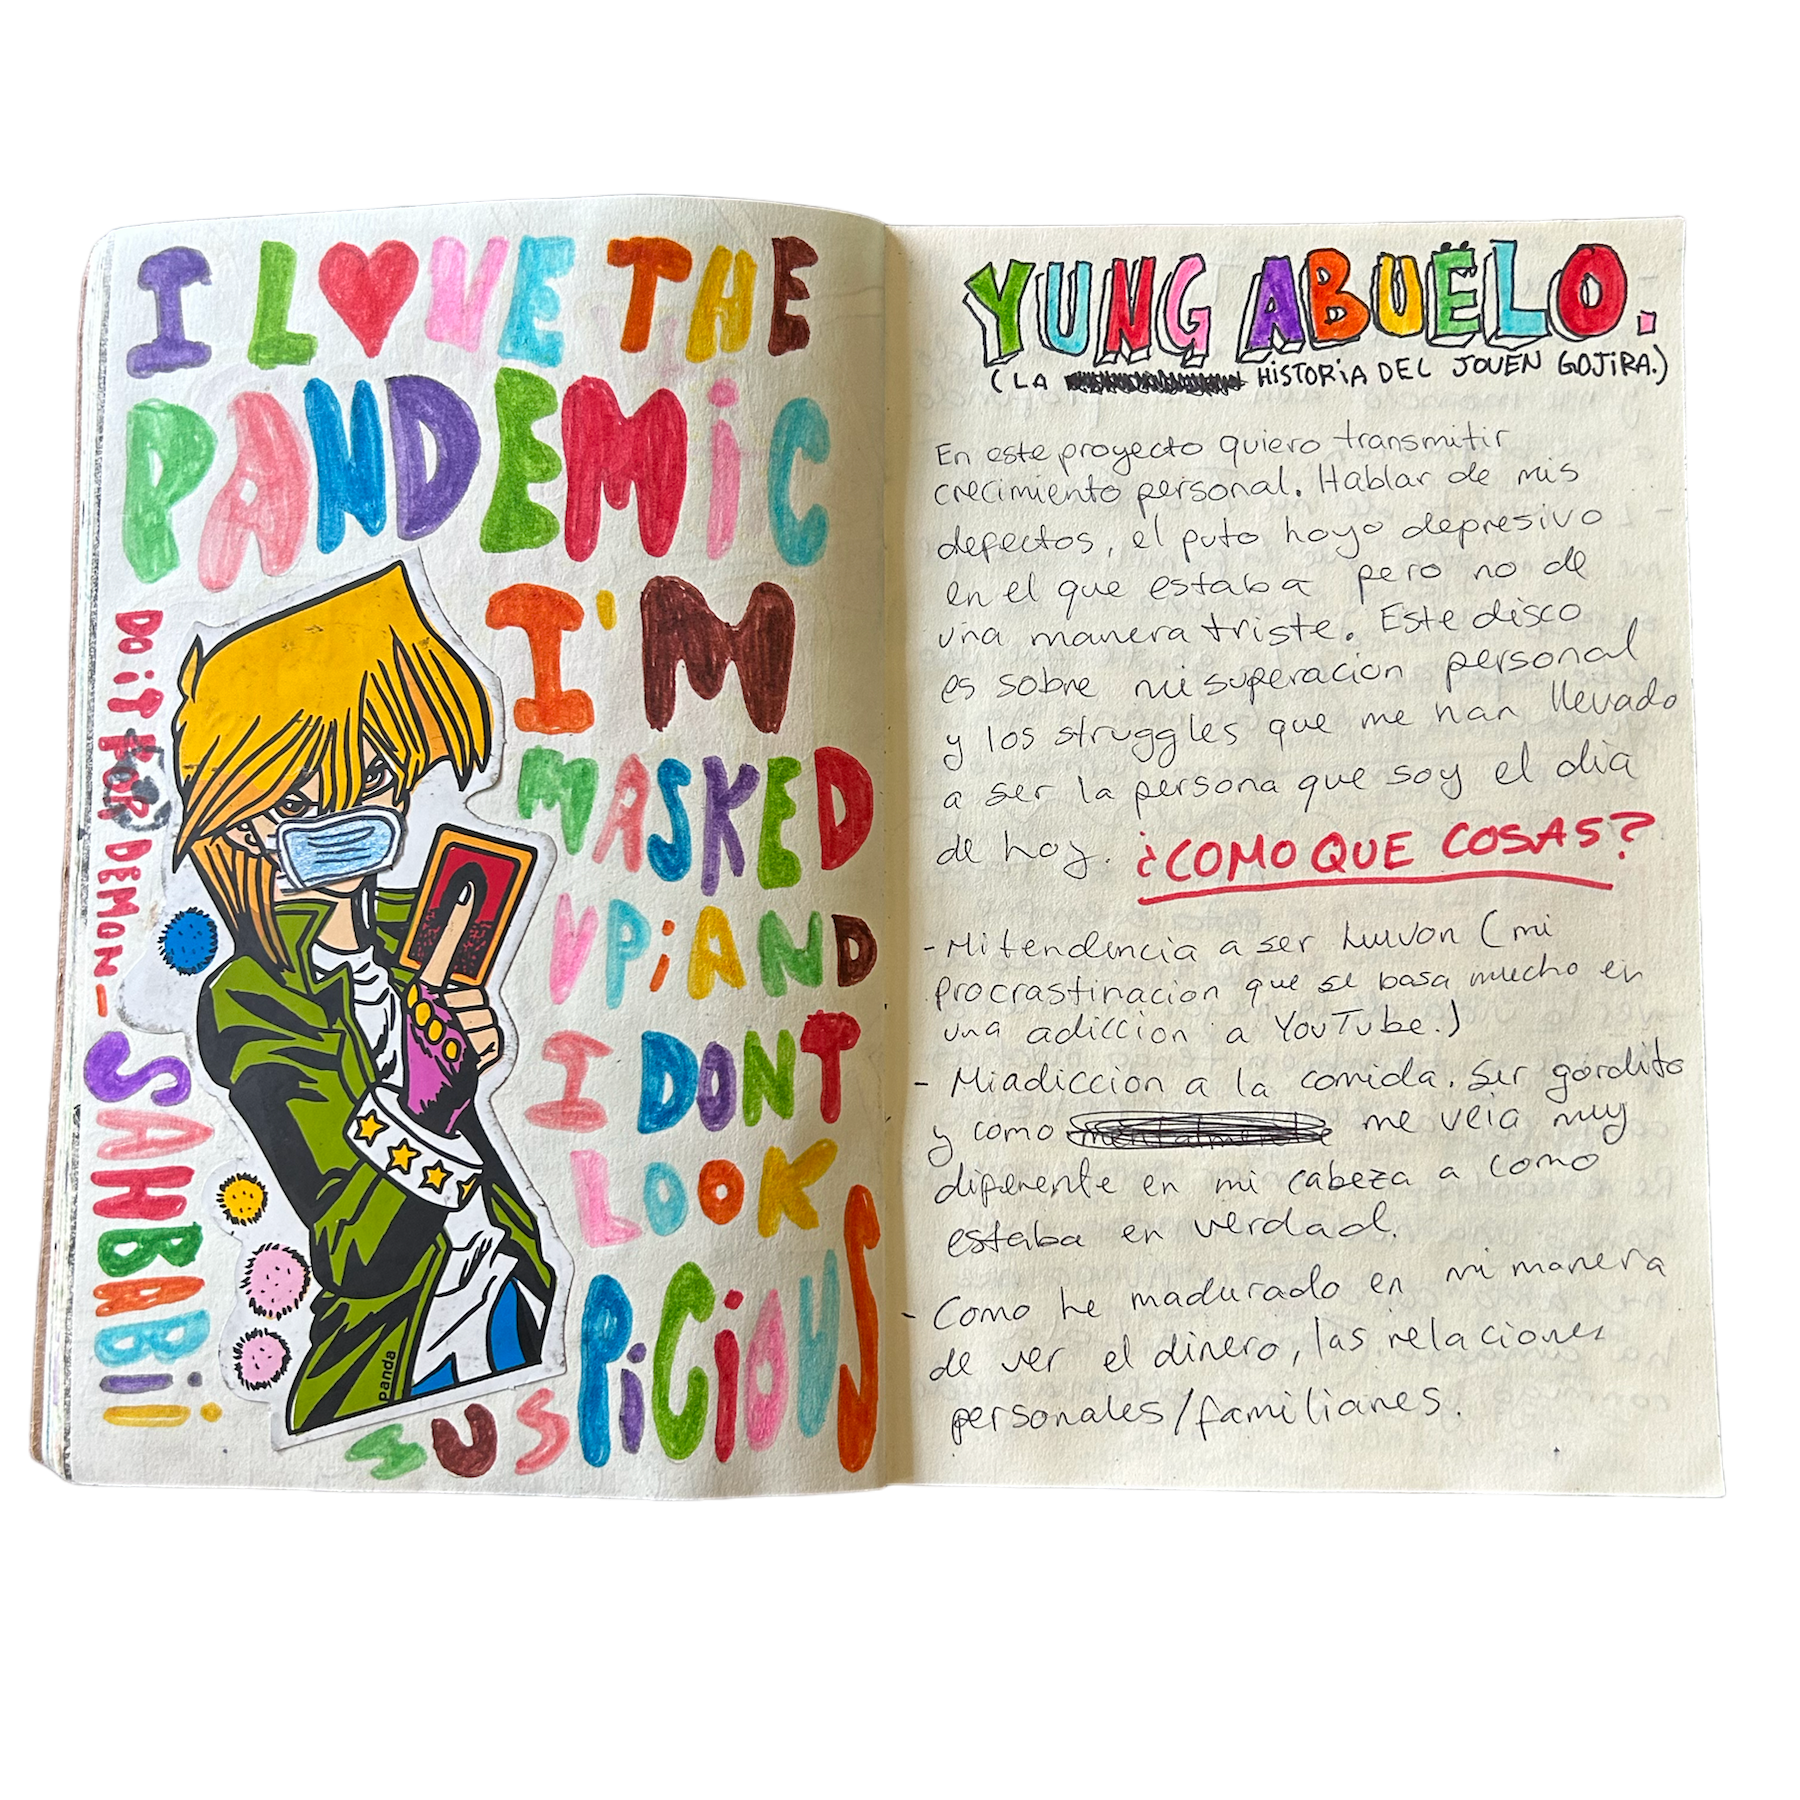 I L♥VE THE
PANDEMiC
I'M
MASKED
UPiAND
I DONT
LOOK
SUSPiCiOUS
DO iT FOR DEMON_
SAHBABiii
panda
YUNG ABUËLO.
(LA HiSTORiA DEL JOVEN GOJiRA.)
En este proyecto quiero transmitir
crecimiento personal. Hablar de mis
defectos, el puto hoyo depresivo
en el que estaba pero no de
una manera triste. Este disco
es sobre mi superacion personal
y los struggles que me han llevado
a ser la persona que soy el dia
de hoy. ¿COMO QUE COSAS?
- Mi tendencia a ser huevon (mi
procrastinacion que se basa mucho en
una adiccion a YouTube.)
- Mi adiccion a la comida. Ser gordito
y como me veia muy
diferente en mi cabeza a como
estaba en verdad.
- Como he madurado en mi manera
de ver el dinero, las relaciones
personales/familiares.